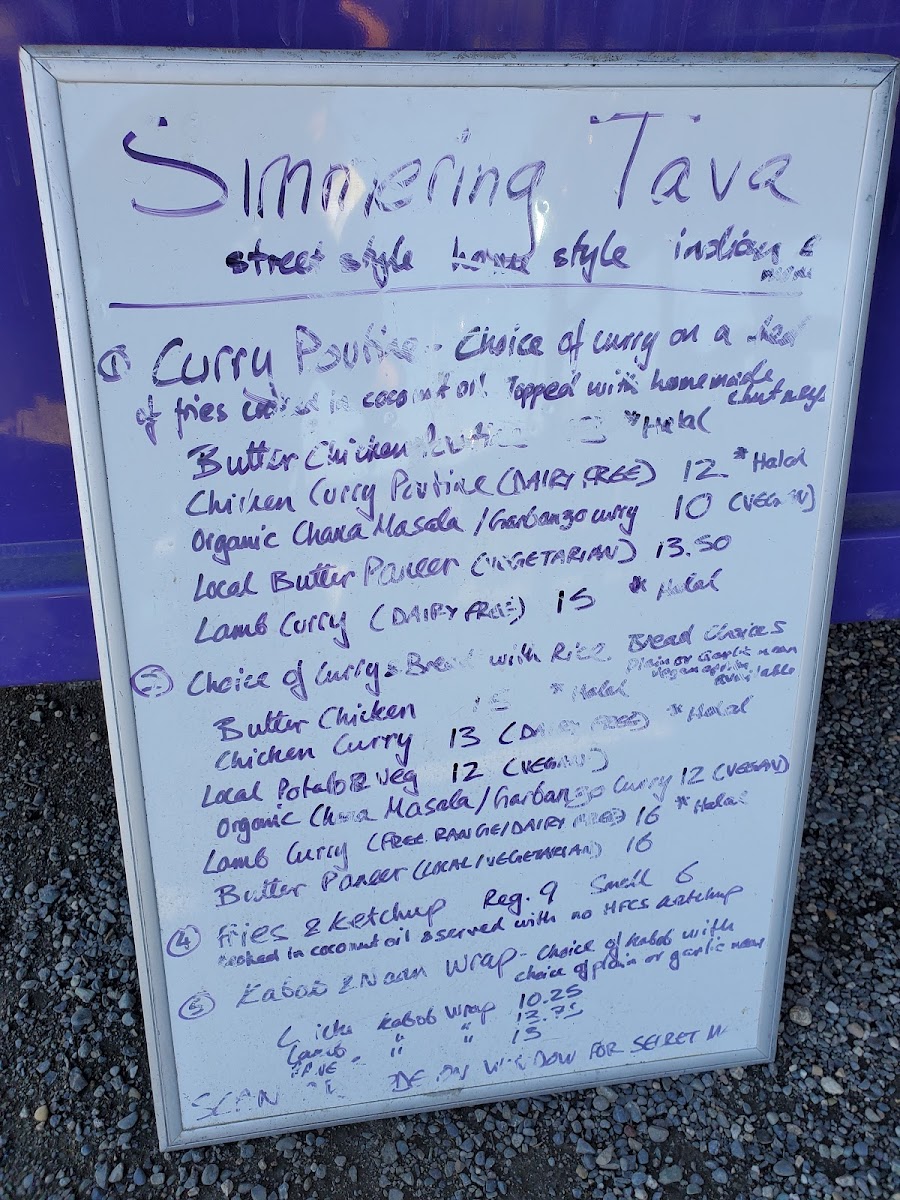 Simmering Tava
street style home style indian &
① Curry Poutine - Choice of curry on a bed
of fries cooked in coconut oil Topped with homemade
chutneys
Butter Chicken Poutine *Halal
Chicken Curry Poutine (DAIRY FREE) 12. *Halal
Organic Chana Masala / Garbanzo curry 10 (VEGAN)
Local Butter Paneer (VEGETARIAN) 13.50
Lamb Curry (DAIRY FREE) 15 * Halal
② Choice of Curry & Bread with Rice Bread Choices
plain or Garlic naan
vegan option
available
Butter Chicken 15 *Halal
Chicken Curry 13 (DAIRY FREE) *Halal
Local Potato & Veg 12 (VEGAN)
Organic Chana Masala / Garbanzo Curry 12 (VEGAN)
Lamb Curry (FREE RANGE/DAIRY FREE) 16 *Halal
Butter Paneer (LOCAL/VEGETARIAN) 16
④ Fries & Ketchup Reg. 9 Small 6
cooked in coconut oil & served with no HFCS ketchup
⑤ Kabob & Naan Wrap - Choice of Kabob with
choice of plain or garlic naan
Kabob Wrap 10.25
Lamb " " 13.75
" " 15
SCAN WINDOW FOR SECRET